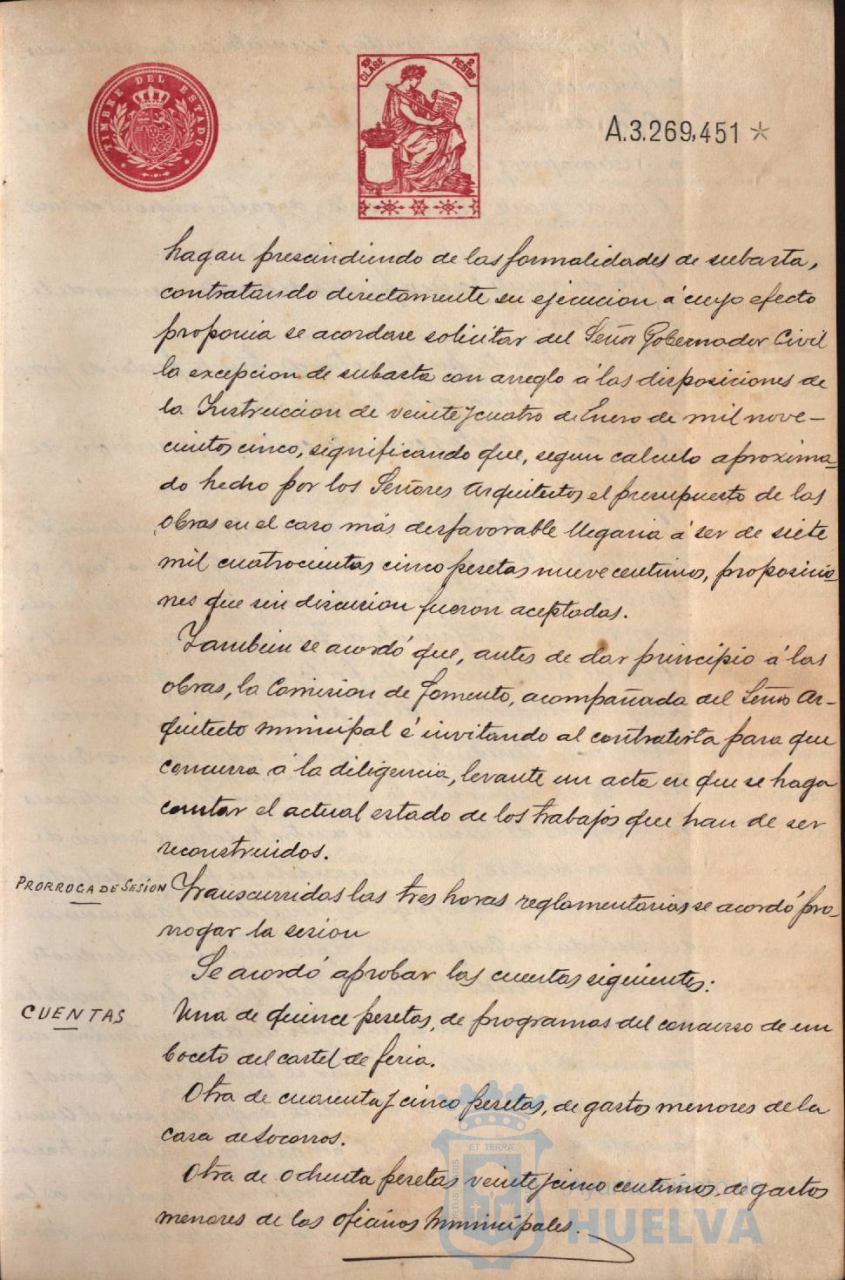 TIMBRE DEL ESTADO
10ª CLASE 2 PESETAS
A.3.269,451 *
hagan prescindiendo de las formalidades de subasta,
contratando directamente su ejecucion á cuyo efecto
proponia se acordase solicitar del Señor Gobernador Civil
la excepcion de subasta con arreglo á las disposiciones de
la Instruccion de veinte y cuatro de Enero de mil nove-
cientos cinco, significando que, segun calculo aproxima-
do hecho por los Señores Arquitectos el presupuesto de las
obras en el caso más desfavorable llegaria á ser de siete
mil cuatrocientas cinco pesetas nueve centimos, proposicio-
nes que sin discusion fueron aceptadas.
Tambien se acordó que, antes de dar principio á las
obras, la Comision de Fomento, acompañada del Señor Ar-
quitecto municipal é invitando al contratista para que
concurra á la diligencia, levante un acta en que se haga
constar el actual estado de los trabajos que han de ser
reconstruidos.
PRORROGA DE SESION Transcurridas las tres horas reglamentarias se acordó pro-
rrogar la sesion
Se acordó aprobar las cuentas siguientes:
CUENTAS Una de quince pesetas, de programas del concurso de un
boceto del cartel de feria.
Otra de cuarenta y cinco pesetas, de gastos menores de la
casa de Socorros.
Otra de ochenta pesetas veinte y cinco centimos, de gastos
menores de las oficinas municipales.
ET TERRÆ
HUELVA